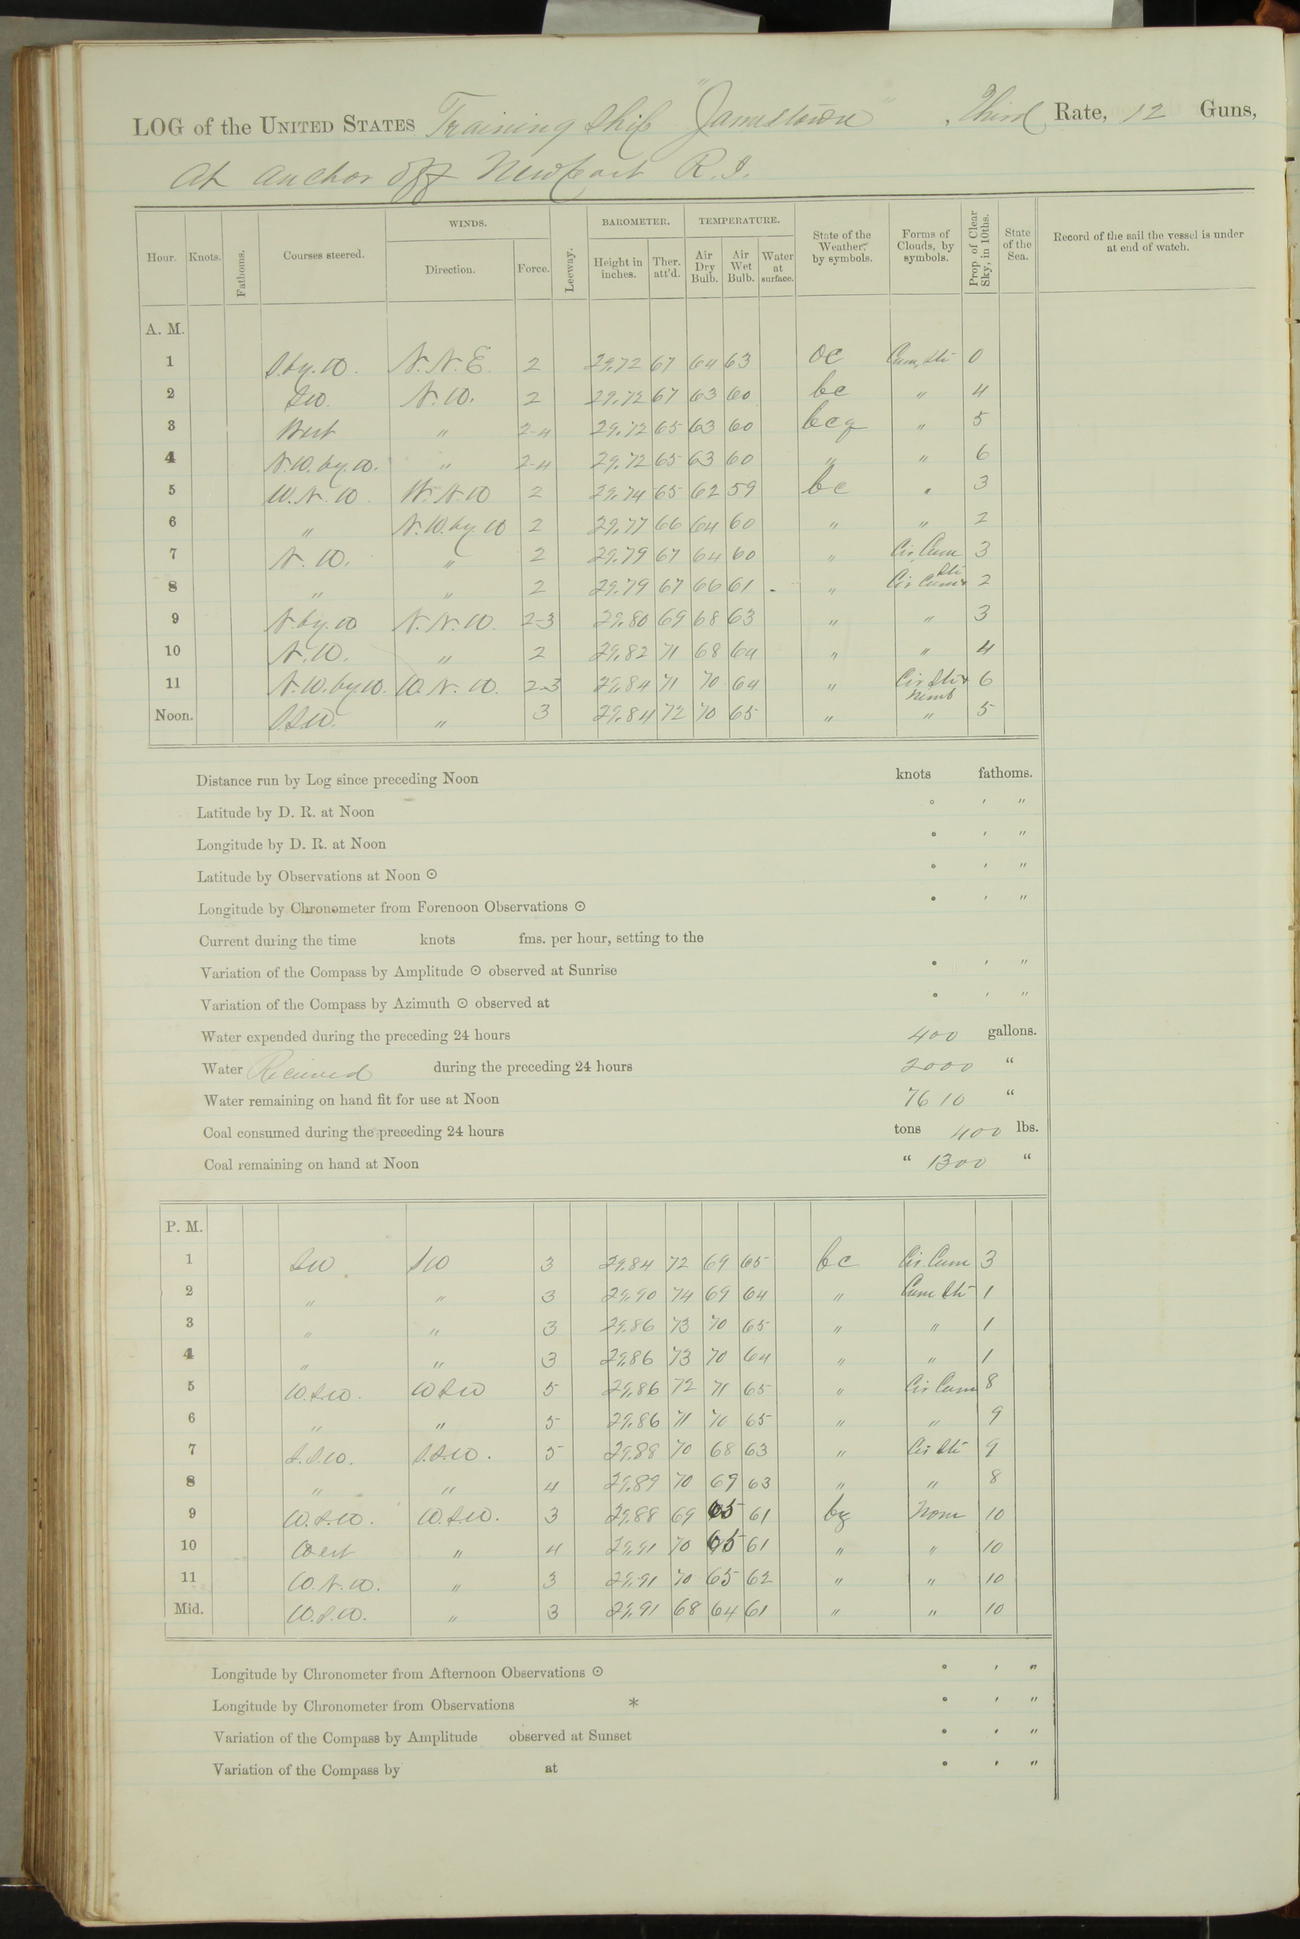 LOG of the UNITED STATES Training Ship "Jamestown", Third Rate, 12 Guns,
At anchor off Newport R.I.
WINDS. BAROMETER. TEMPERATURE.
Hour. Knots. Fathoms. Courses steered. Direction. Force. Leeway. Height in inches. Ther. att'd. Air Dry Bulb. Air Wet Bulb. Water at surface. State of the Weather, by symbols. Forms of Clouds, by symbols. Prop. of Clear Sky, in 10ths. State of the Sea. Record of the sail the vessel is under at end of watch.
A. M.
1 S.by.W. N.N.E. 2 29.72 67 64 63 oc Cum, Str 0
2 SW. N.W. 2 29.72 67 63 60 bc " 4
3 West " 2-4 29.72 65 63 60 bcq " 5
4 N.W.by.W. " 2-4 29.72 65 63 60 " " 6
5 W.N.W. W.N.W 2 29.74 65 62 59 bc " 3
6 " N.W.by.W 2 29.77 66 64 60 " " 2
7 N.W. " 2 29.79 67 64 60 " Cir. Cum 3
8 " " 2 29.79 67 66 61 " Cir Cum + Str 2
9 N.by.W N.N.W. 2-3 29.80 69 68 63 " " 3
10 N.W. " 2 29.82 71 68 64 " " 4
11 N.W.by.W. W.N.W. 2-3 29.84 71 70 64 " Cir Str + Nimb 6
Noon. S.S.W. " 3 29.84 72 70 65 " " 5
Distance run by Log since preceding Noon knots fathoms.
Latitude by D. R. at Noon ° ′ ″
Longitude by D. R. at Noon ° ′ ″
Latitude by Observations at Noon ⊙ ° ′ ″
Longitude by Chronometer from Forenoon Observations ⊙ ° ′ ″
Current during the time knots fms. per hour, setting to the
Variation of the Compass by Amplitude ⊙ observed at Sunrise ° ′ ″
Variation of the Compass by Azimuth ⊙ observed at ° ′ ″
Water expended during the preceding 24 hours 400 gallons.
Water Received during the preceding 24 hours 2000 "
Water remaining on hand fit for use at Noon 7610 "
Coal consumed during the preceding 24 hours tons 400 lbs.
Coal remaining on hand at Noon " 1300 "
P. M.
1 SW SW 3 29.84 72 69 65 bc Cir. Cum 3
2 " " 3 29.90 74 69 64 " Cum Str 1
3 " " 3 29.86 73 70 65 " " 1
4 " " 3 29.86 73 70 64 " " 1
5 W.S.W. WSW 5 29.86 72 71 65 " Cir Cum 8
6 " " 5 29.86 71 70 65 " " 9
7 S.S.W. S.S.W. 5 29.88 70 68 63 " Cir Str 9
8 " " 4 29.89 70 69 63 " " 8
9 W.S.W. W.S.W. 3 29.88 69 65 61 None 10
10 West " 4 29.91 70 65 61 " " 10
11 W.N.W. " 3 29.91 70 65 62 " " 10
Mid. W.S.W. " 3 29.91 68 64 61 " " 10
Longitude by Chronometer from Afternoon Observations ⊙ ° ′ ″
Longitude by Chronometer from Observations * ° ′ ″
Variation of the Compass by Amplitude observed at Sunset ° ′ ″
Variation of the Compass by at ° ′ ″